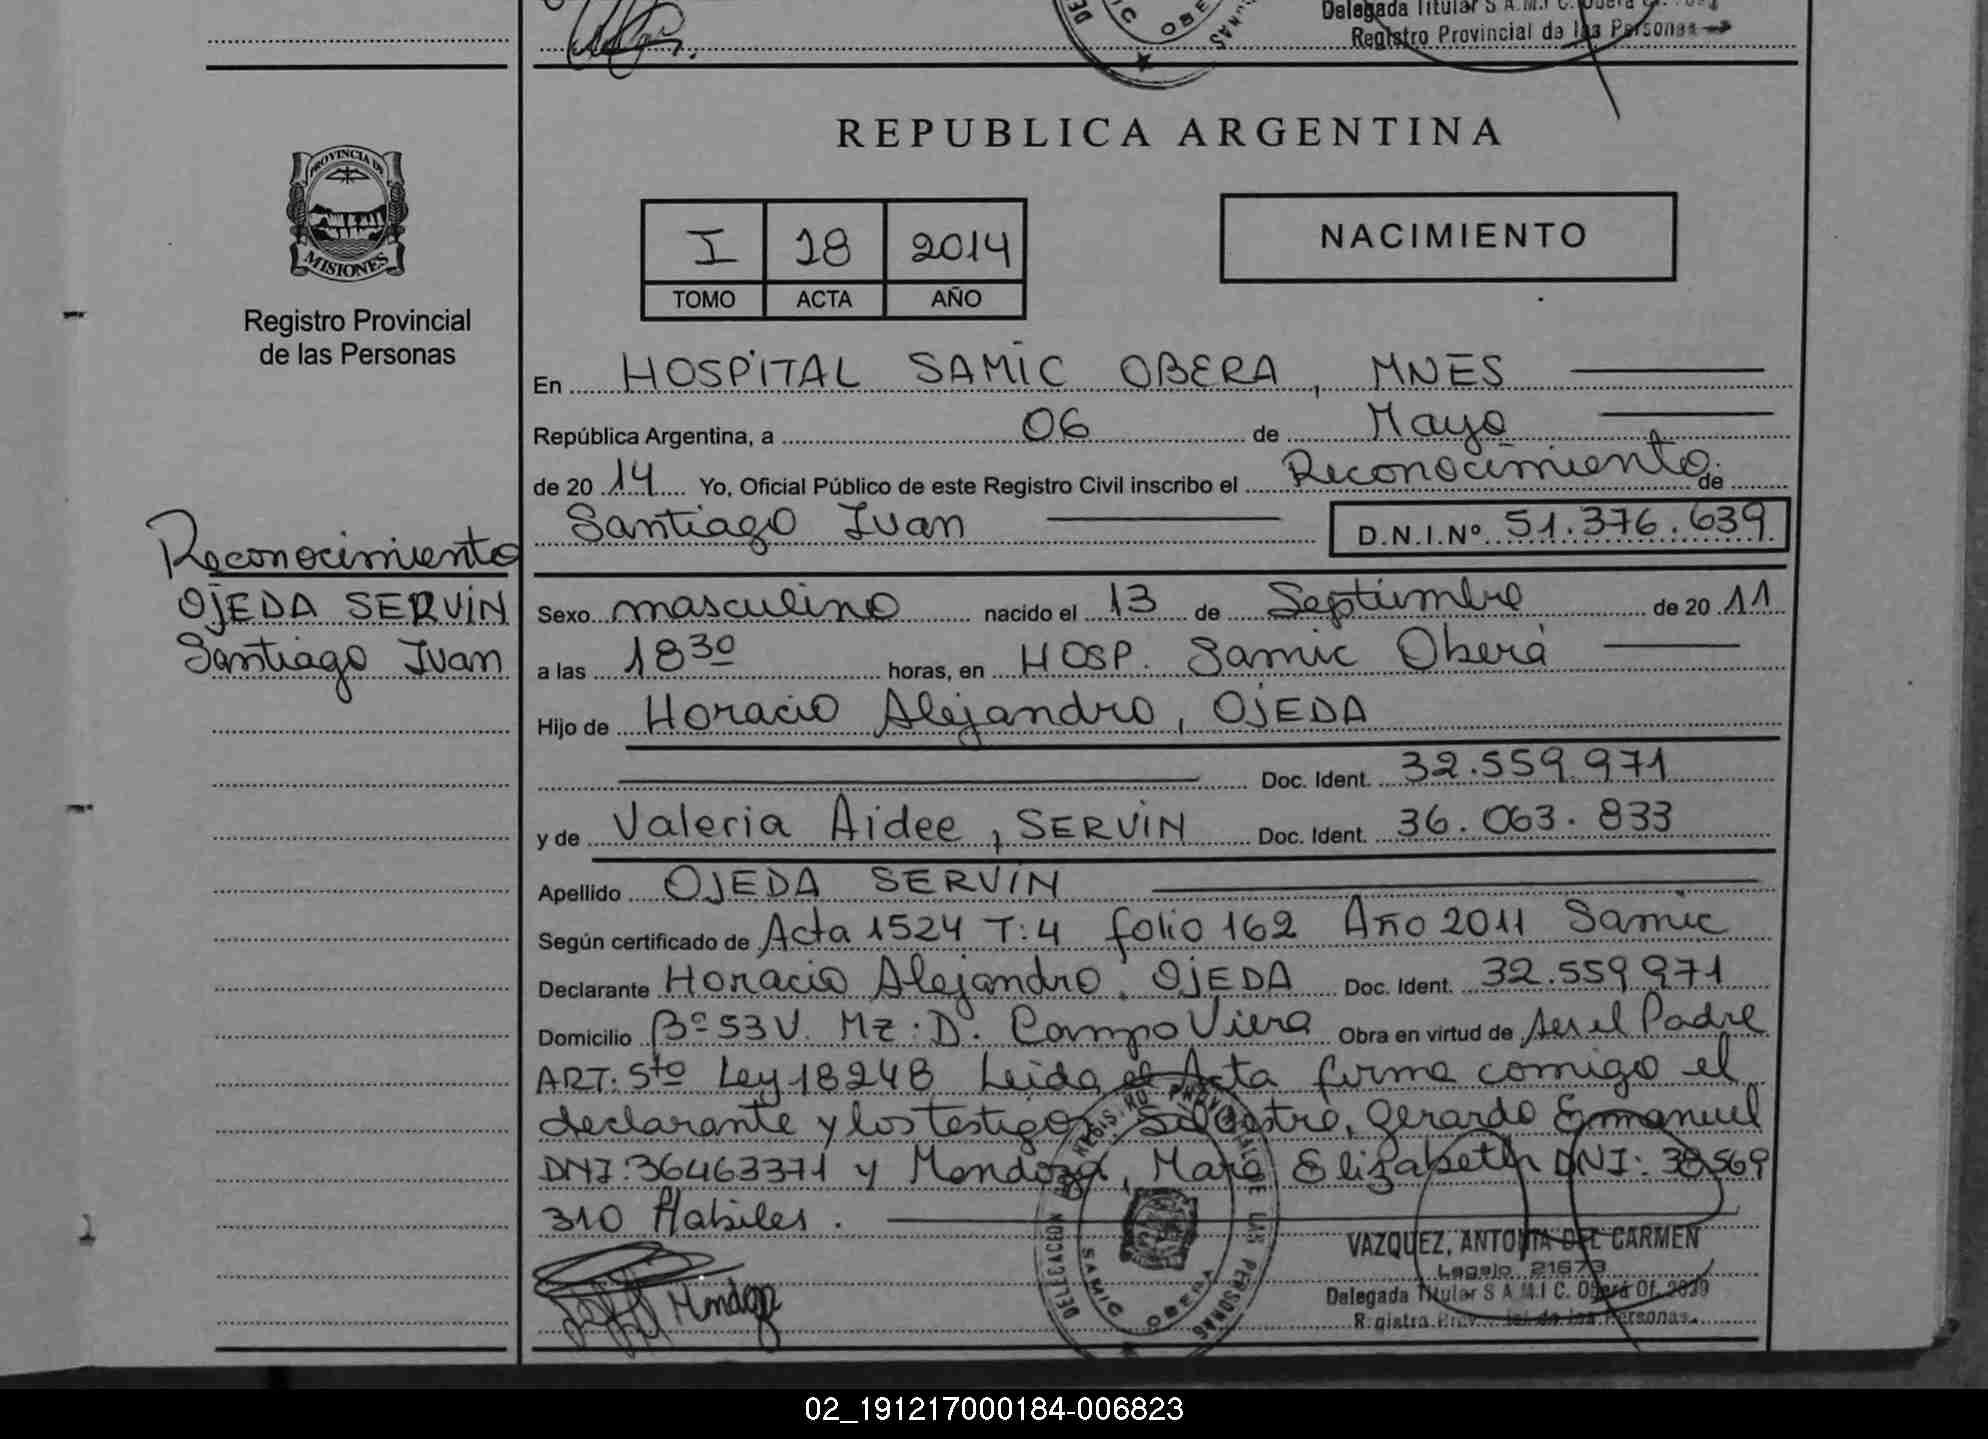 Delegada Titular S.A.M.I C. Oberá
Registro Provincial de las Personas
REPUBLICA ARGENTINA
PROVINCIA DE
MISIONES
Registro Provincial
de las Personas
I 18 2014
TOMO ACTA AÑO
NACIMIENTO
En HOSPITAL SAMIC OBERA, MNES
República Argentina, a 06 de Mayo
de 20 14 Yo, Oficial Público de este Registro Civil inscribo el Reconocimiento de
Santiago Iván D.N.I.Nº 51.376.639
Reconocimiento
OJEDA SERVIN
Santiago Ivan
Sexo masculino nacido el 13 de Septiembre de 20 11
a las 18 30 horas, en HOSP. Samic Oberá
Hijo de Horacio Alejandro, OJEDA
Doc. Ident. 32.559.971
y de Valeria Aidee, SERVIN Doc. Ident. 36.063.833
Apellido OJEDA SERVIN
Según certificado de Acta 1524 T:4 folio 162 Año 2011 Samic
Declarante Horacio Alejandro, OJEDA Doc. Ident. 32.559.971
Domicilio Bº 53 V. Mz: D. Campo Viera Obra en virtud de ser el Padre
ART: 5to Ley 18248 Leida el Acta firma comigo el
declarante y los testigos Silvestro, Gerardo Emanuel
DNI: 36463371 y Mendoza, Mara Elizabeth DNI: 38569
310 Habiles.
Mendoza
DELEGACION SAMIC OBERA
VAZQUEZ, ANTONIA DEL CARMEN
Legajo 21673
Delegada Titular S.A.M.I C. Oberá Of. 2039
Registro Provincial de las Personas
02_191217000184-006823